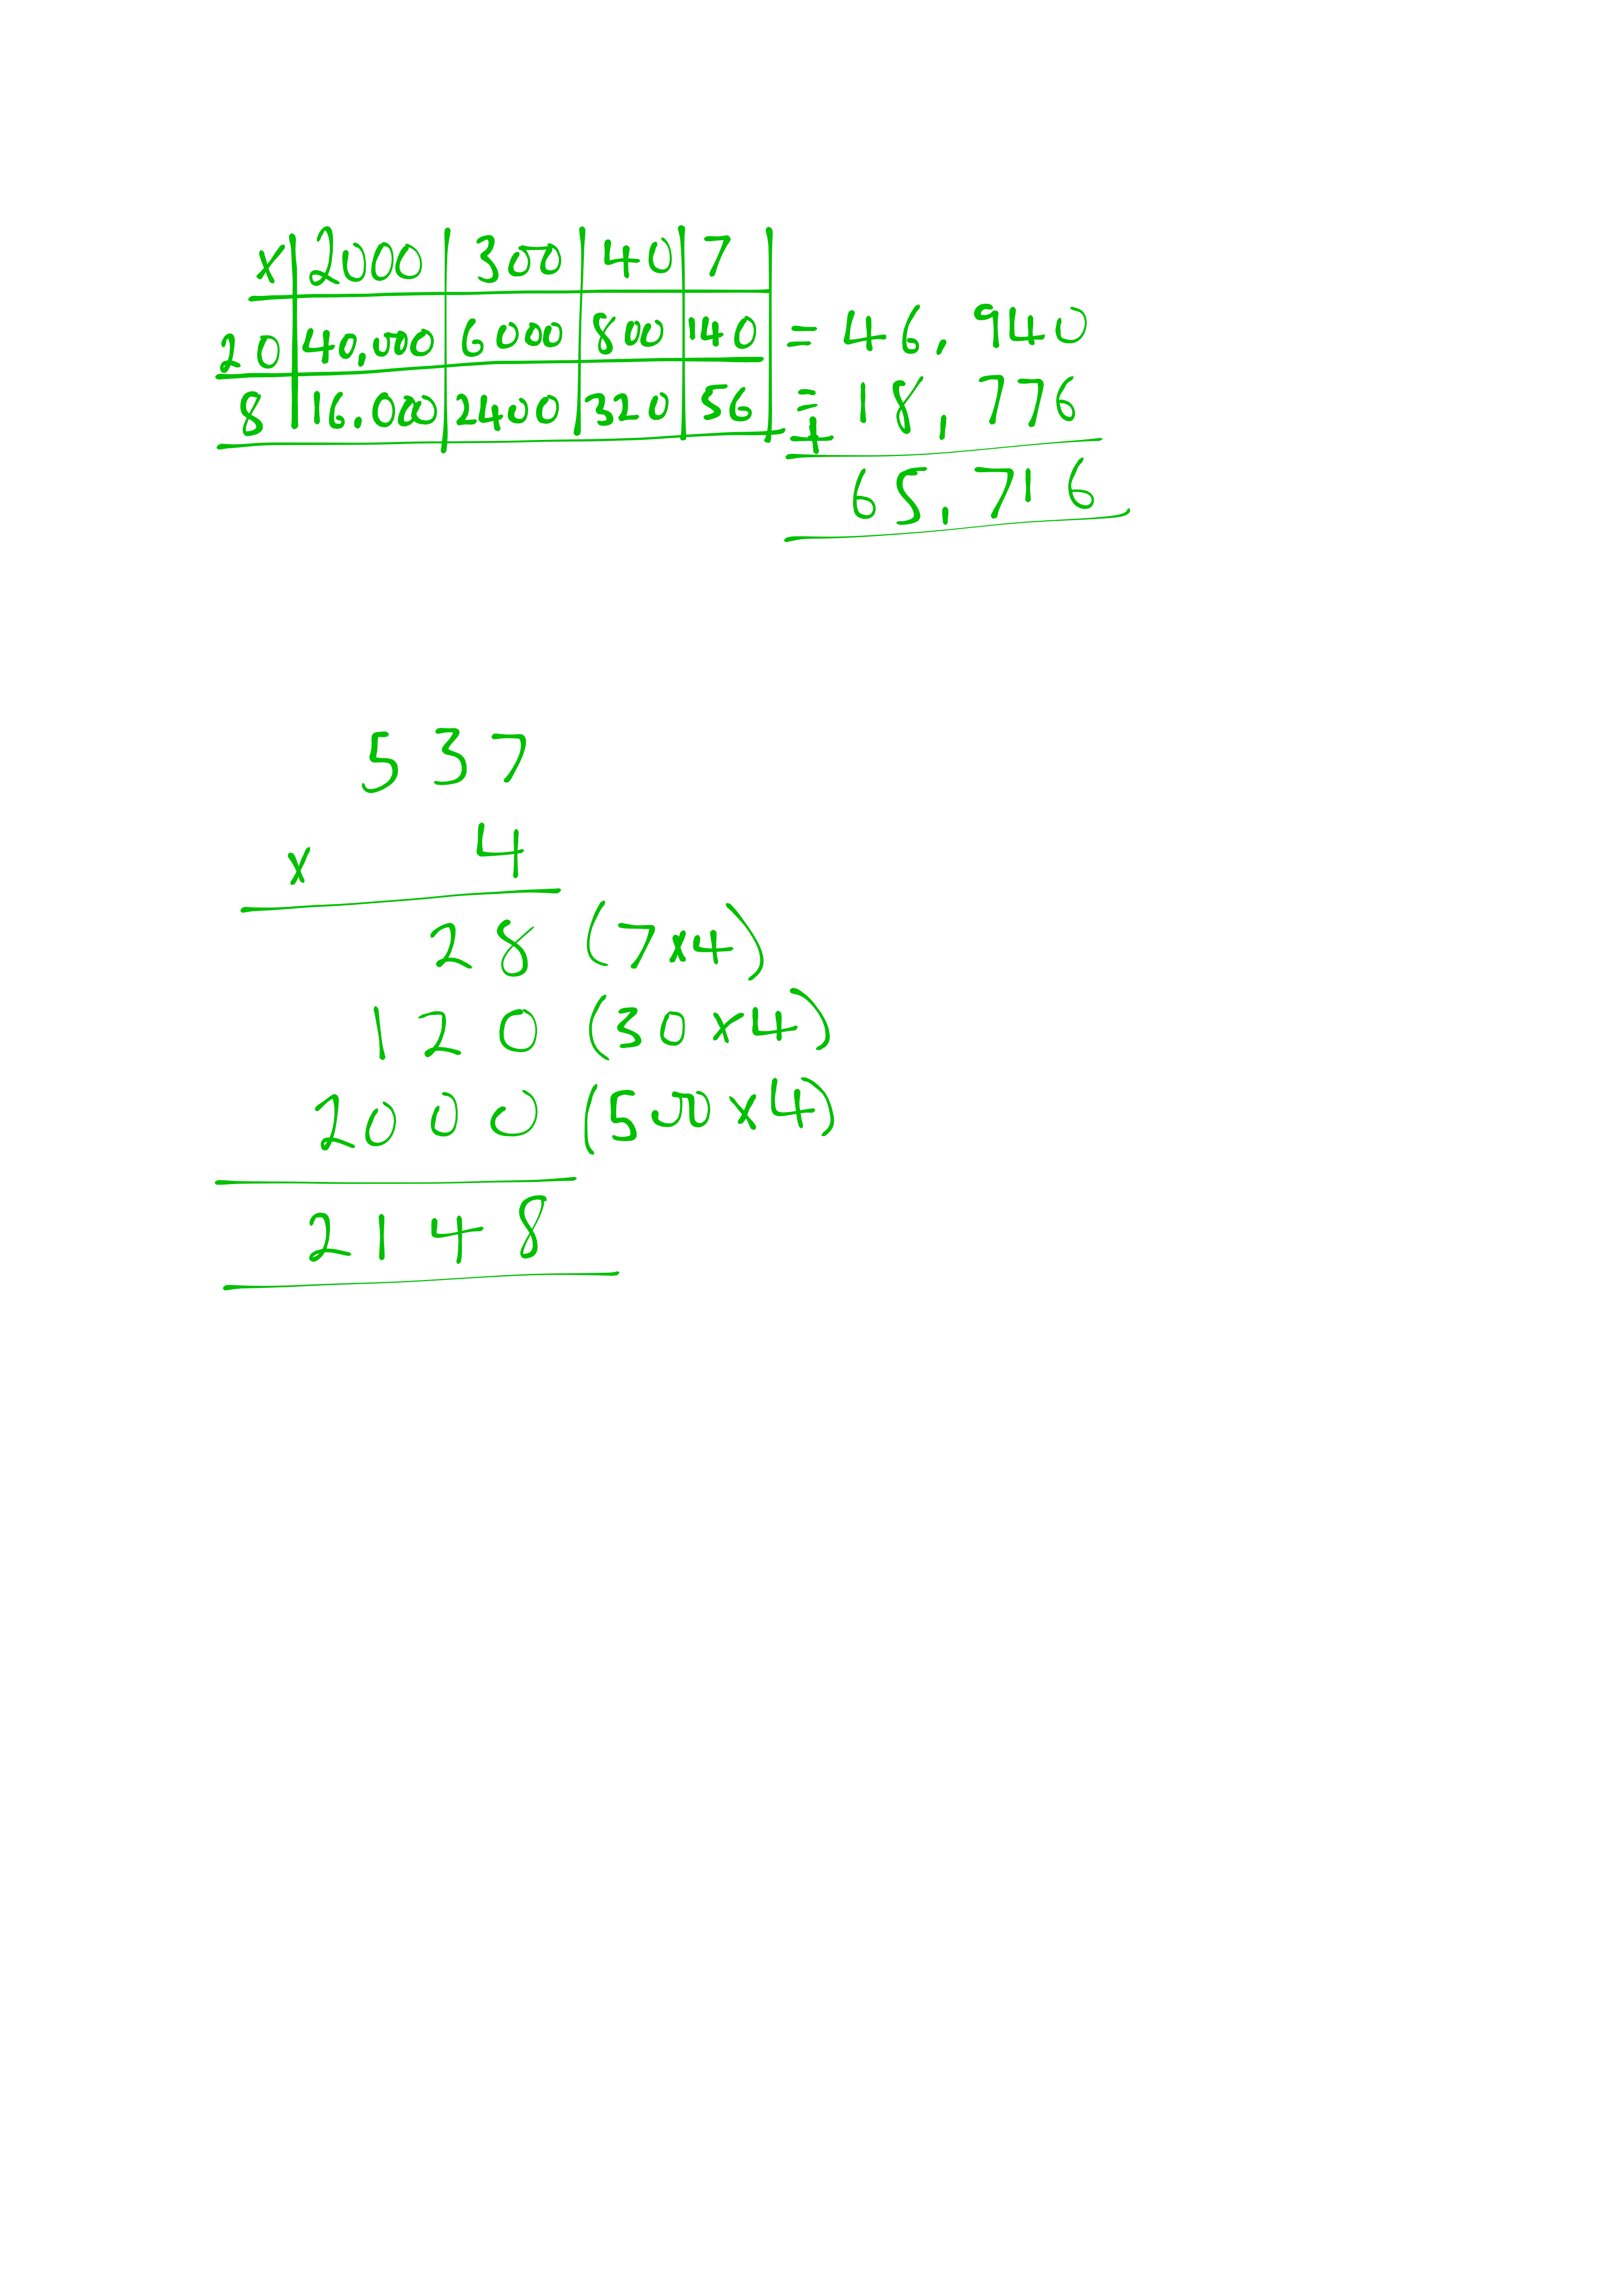 x 2000 300 40 7
20 40,000 6000 800 140 = 46,940
8 16,000 2400 320 56 = 18,776
+
65,716
537
x 4
28 (7x4)
120 (30x4)
2000 (500x4)
2148